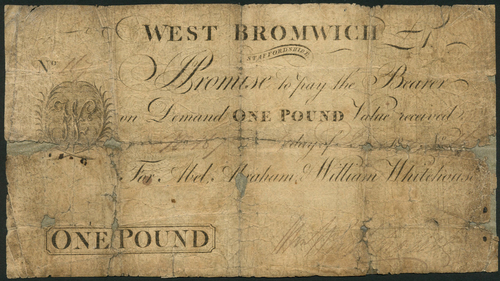 WEST BROMWICH £1
STAFFORDSHIRE
No
I Promise to pay the Bearer
on Demand ONE POUND Value received
day of
For Abel, Abraham, & William Whitehouse
ONE POUND